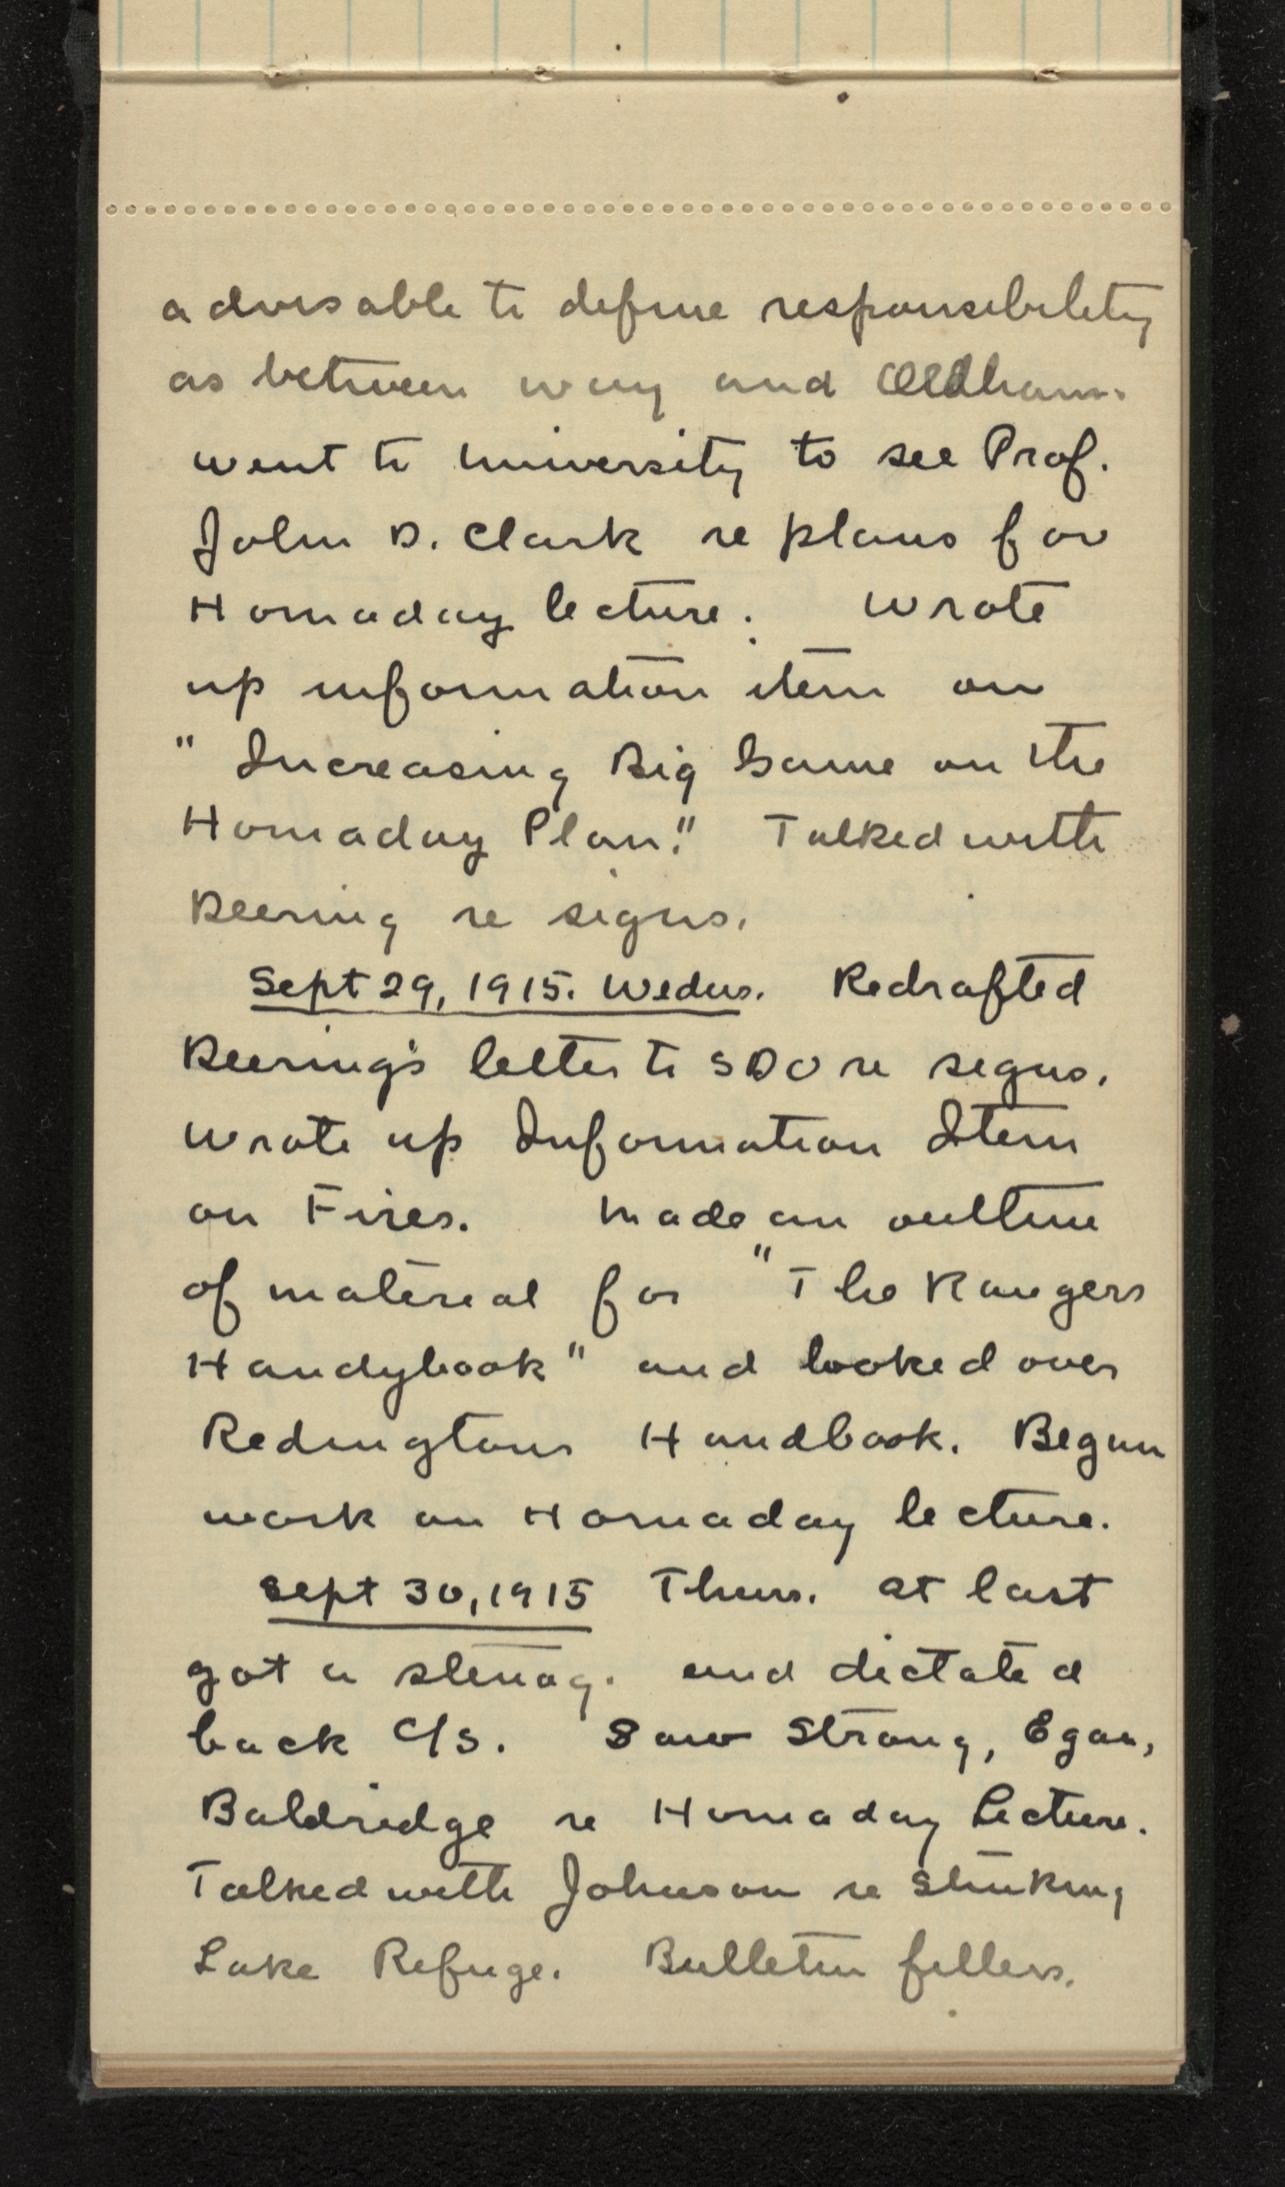 advisable to define responsibility
as between Wey and Oldham.
Went to University to see Prof.
John D. Clark re plans for
Hornaday lecture. Wrote
up information item on
"Increasing Big Game on the
Hornaday Plan." Talked with
Deering re signs.
Sept 29, 1915. Wedns. Redrafted
Deering's letter to SDO re signs.
Wrote up Information Item
on Fires. Made an outline
of material for "The Rangers
Handybook" and looked over
Redingtons Handbook. Began
work on Hornaday lecture.
Sept 30, 1915 Thurs. At last
got a stenog. and dictated
back C/s. Saw Strong, Egan,
Baldridge re Hornaday Lecture.
Talked with Johnson re Stinking
Lake Refuge. Bulletin fillers.